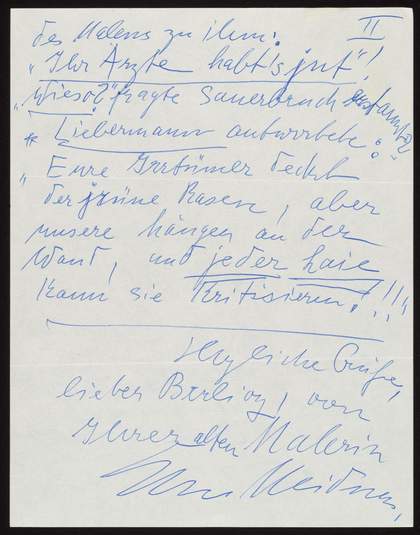 II
des Malens zu ihm:
„Ihr Ärzte habt's jut"!
„Wieso?" fragte Sauerbruch erstaunt?
* Liebermann antwortete:
„Eure Irrtümer deckt
der jrüne Rasen, aber
unsere hängen an der
Want, und jeder Laie
kann sie kritisieren!!!"
Herzliche Grüße,
lieber Berlioz, von
Ihrer alten Malerin